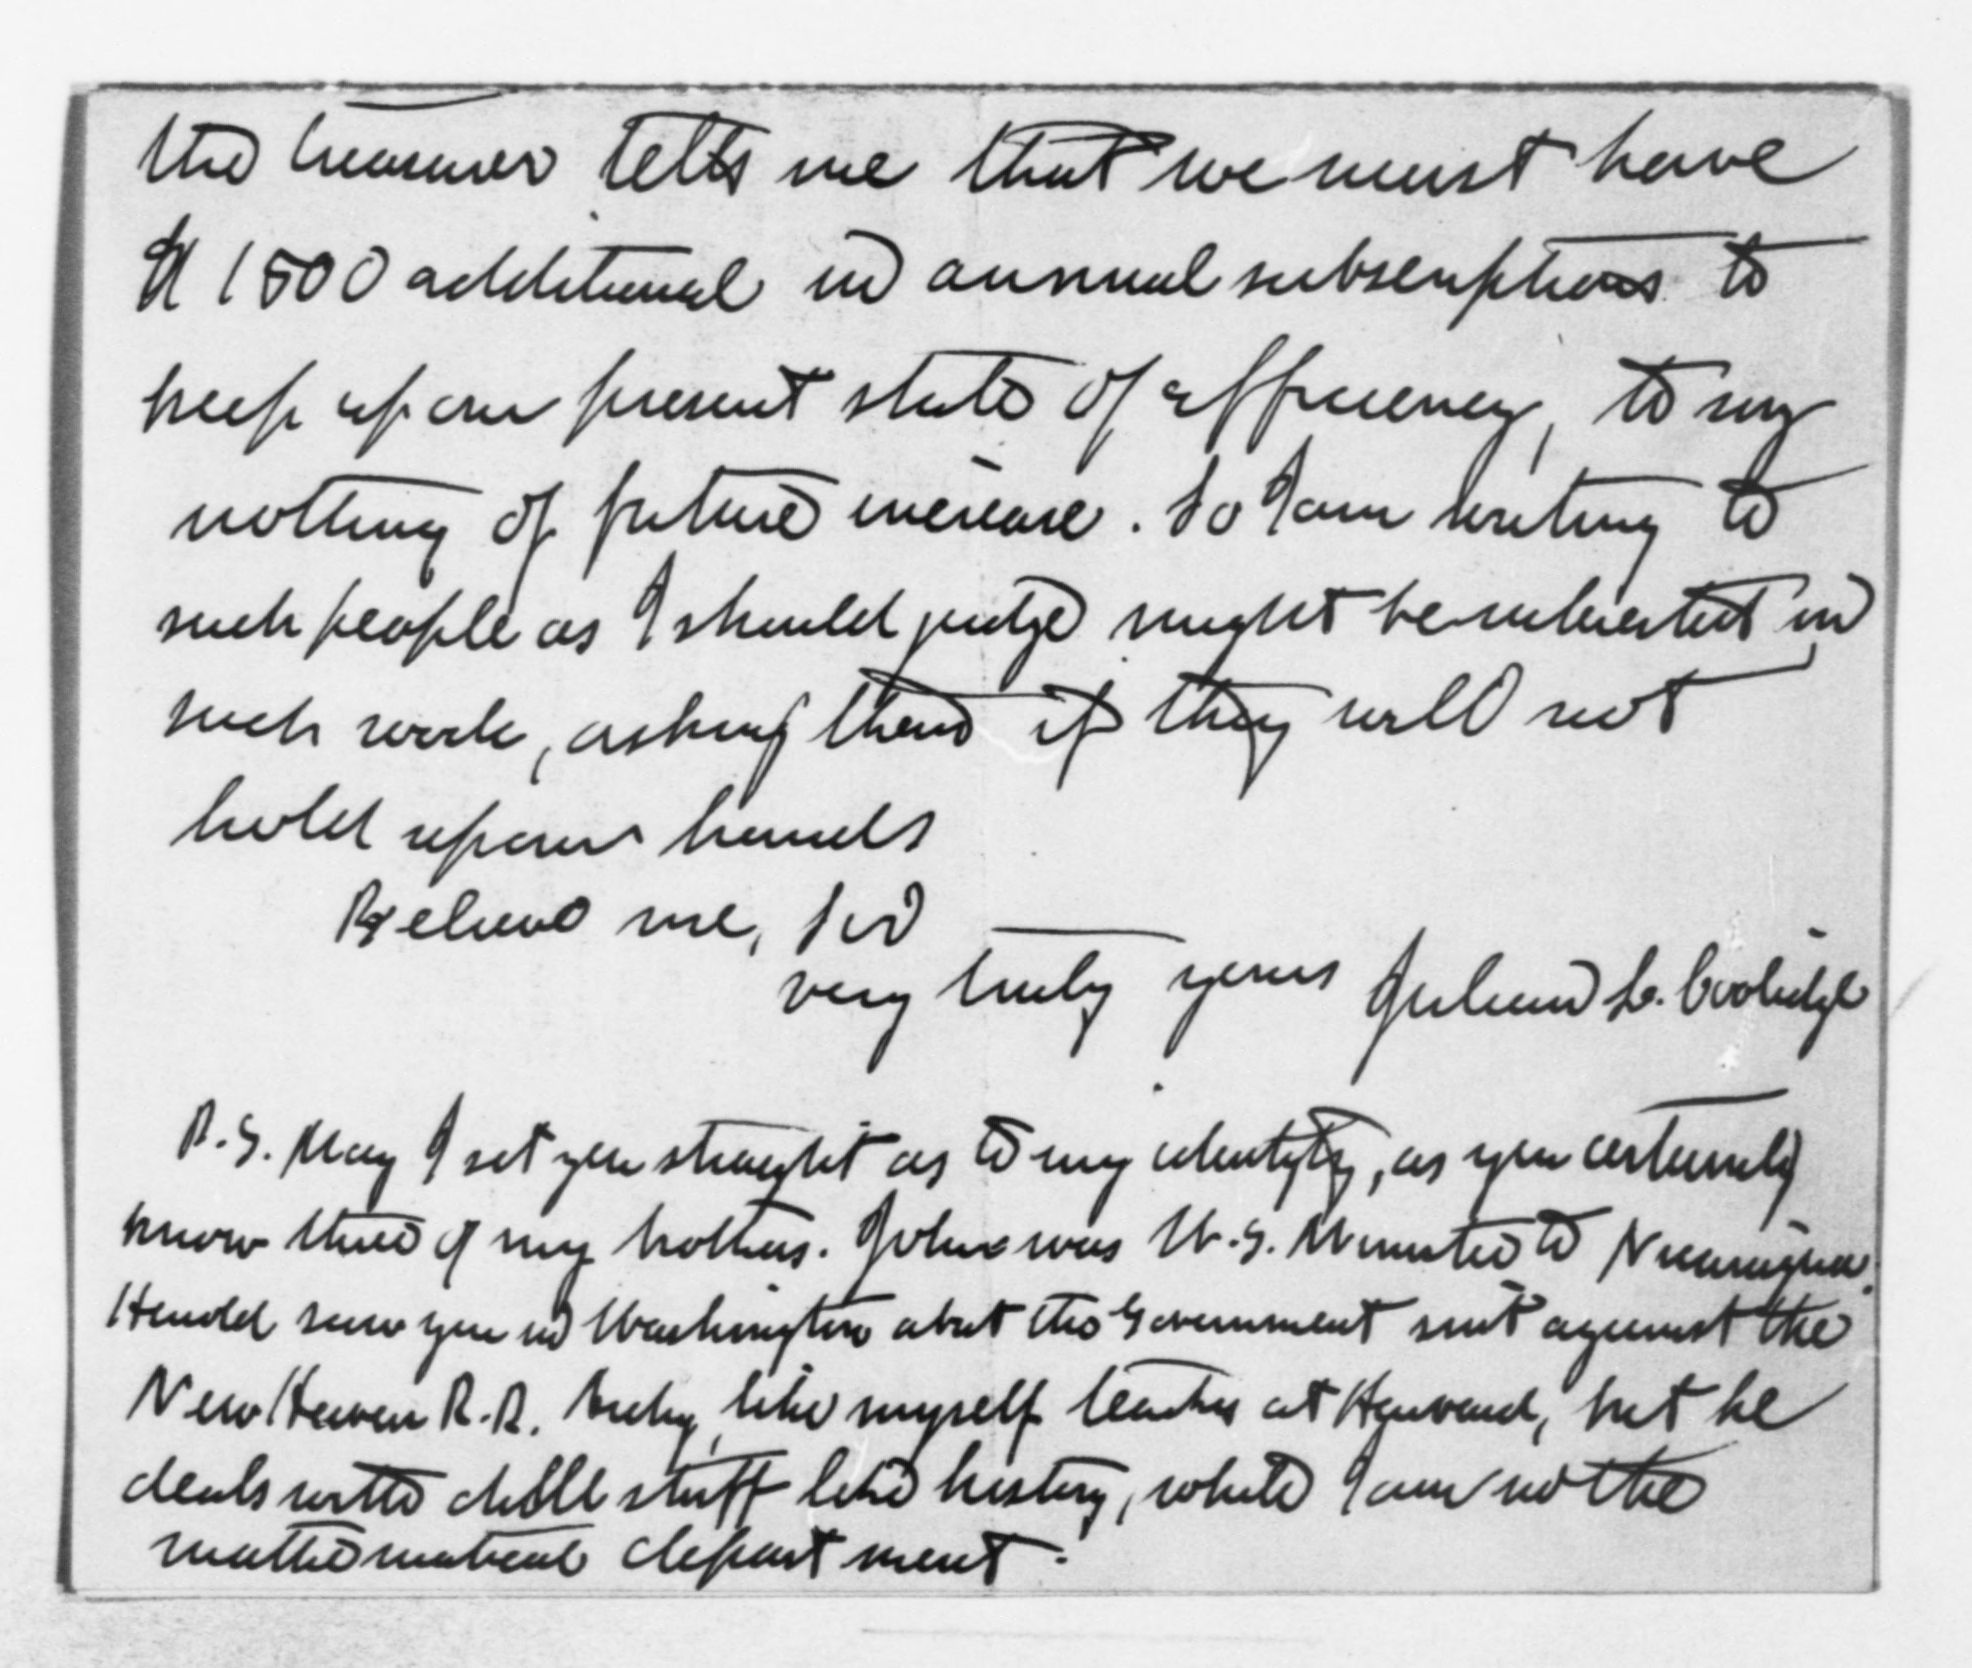 the treasurer tells me that we must have
$1500 additional in annual subscriptions to
keep up our present state of efficiency, to say
nothing of future increase. So I am writing to
such people as I should judge might be interested in
such work, asking them if they will not
hold up our hands
Believe me, Sir
very truly yours Julian L. Coolidge
P.S. May I set you straight as to my identity, as you certainly
know three of my brothers. John was U.S. Minister to Nicaragua.
Harold saw you in Washington about the Government suit against the
New Haven R.R. Archy, like myself teaches at Harvard, but he
deals with dull stuff like history, while I am in the
mathematical department.